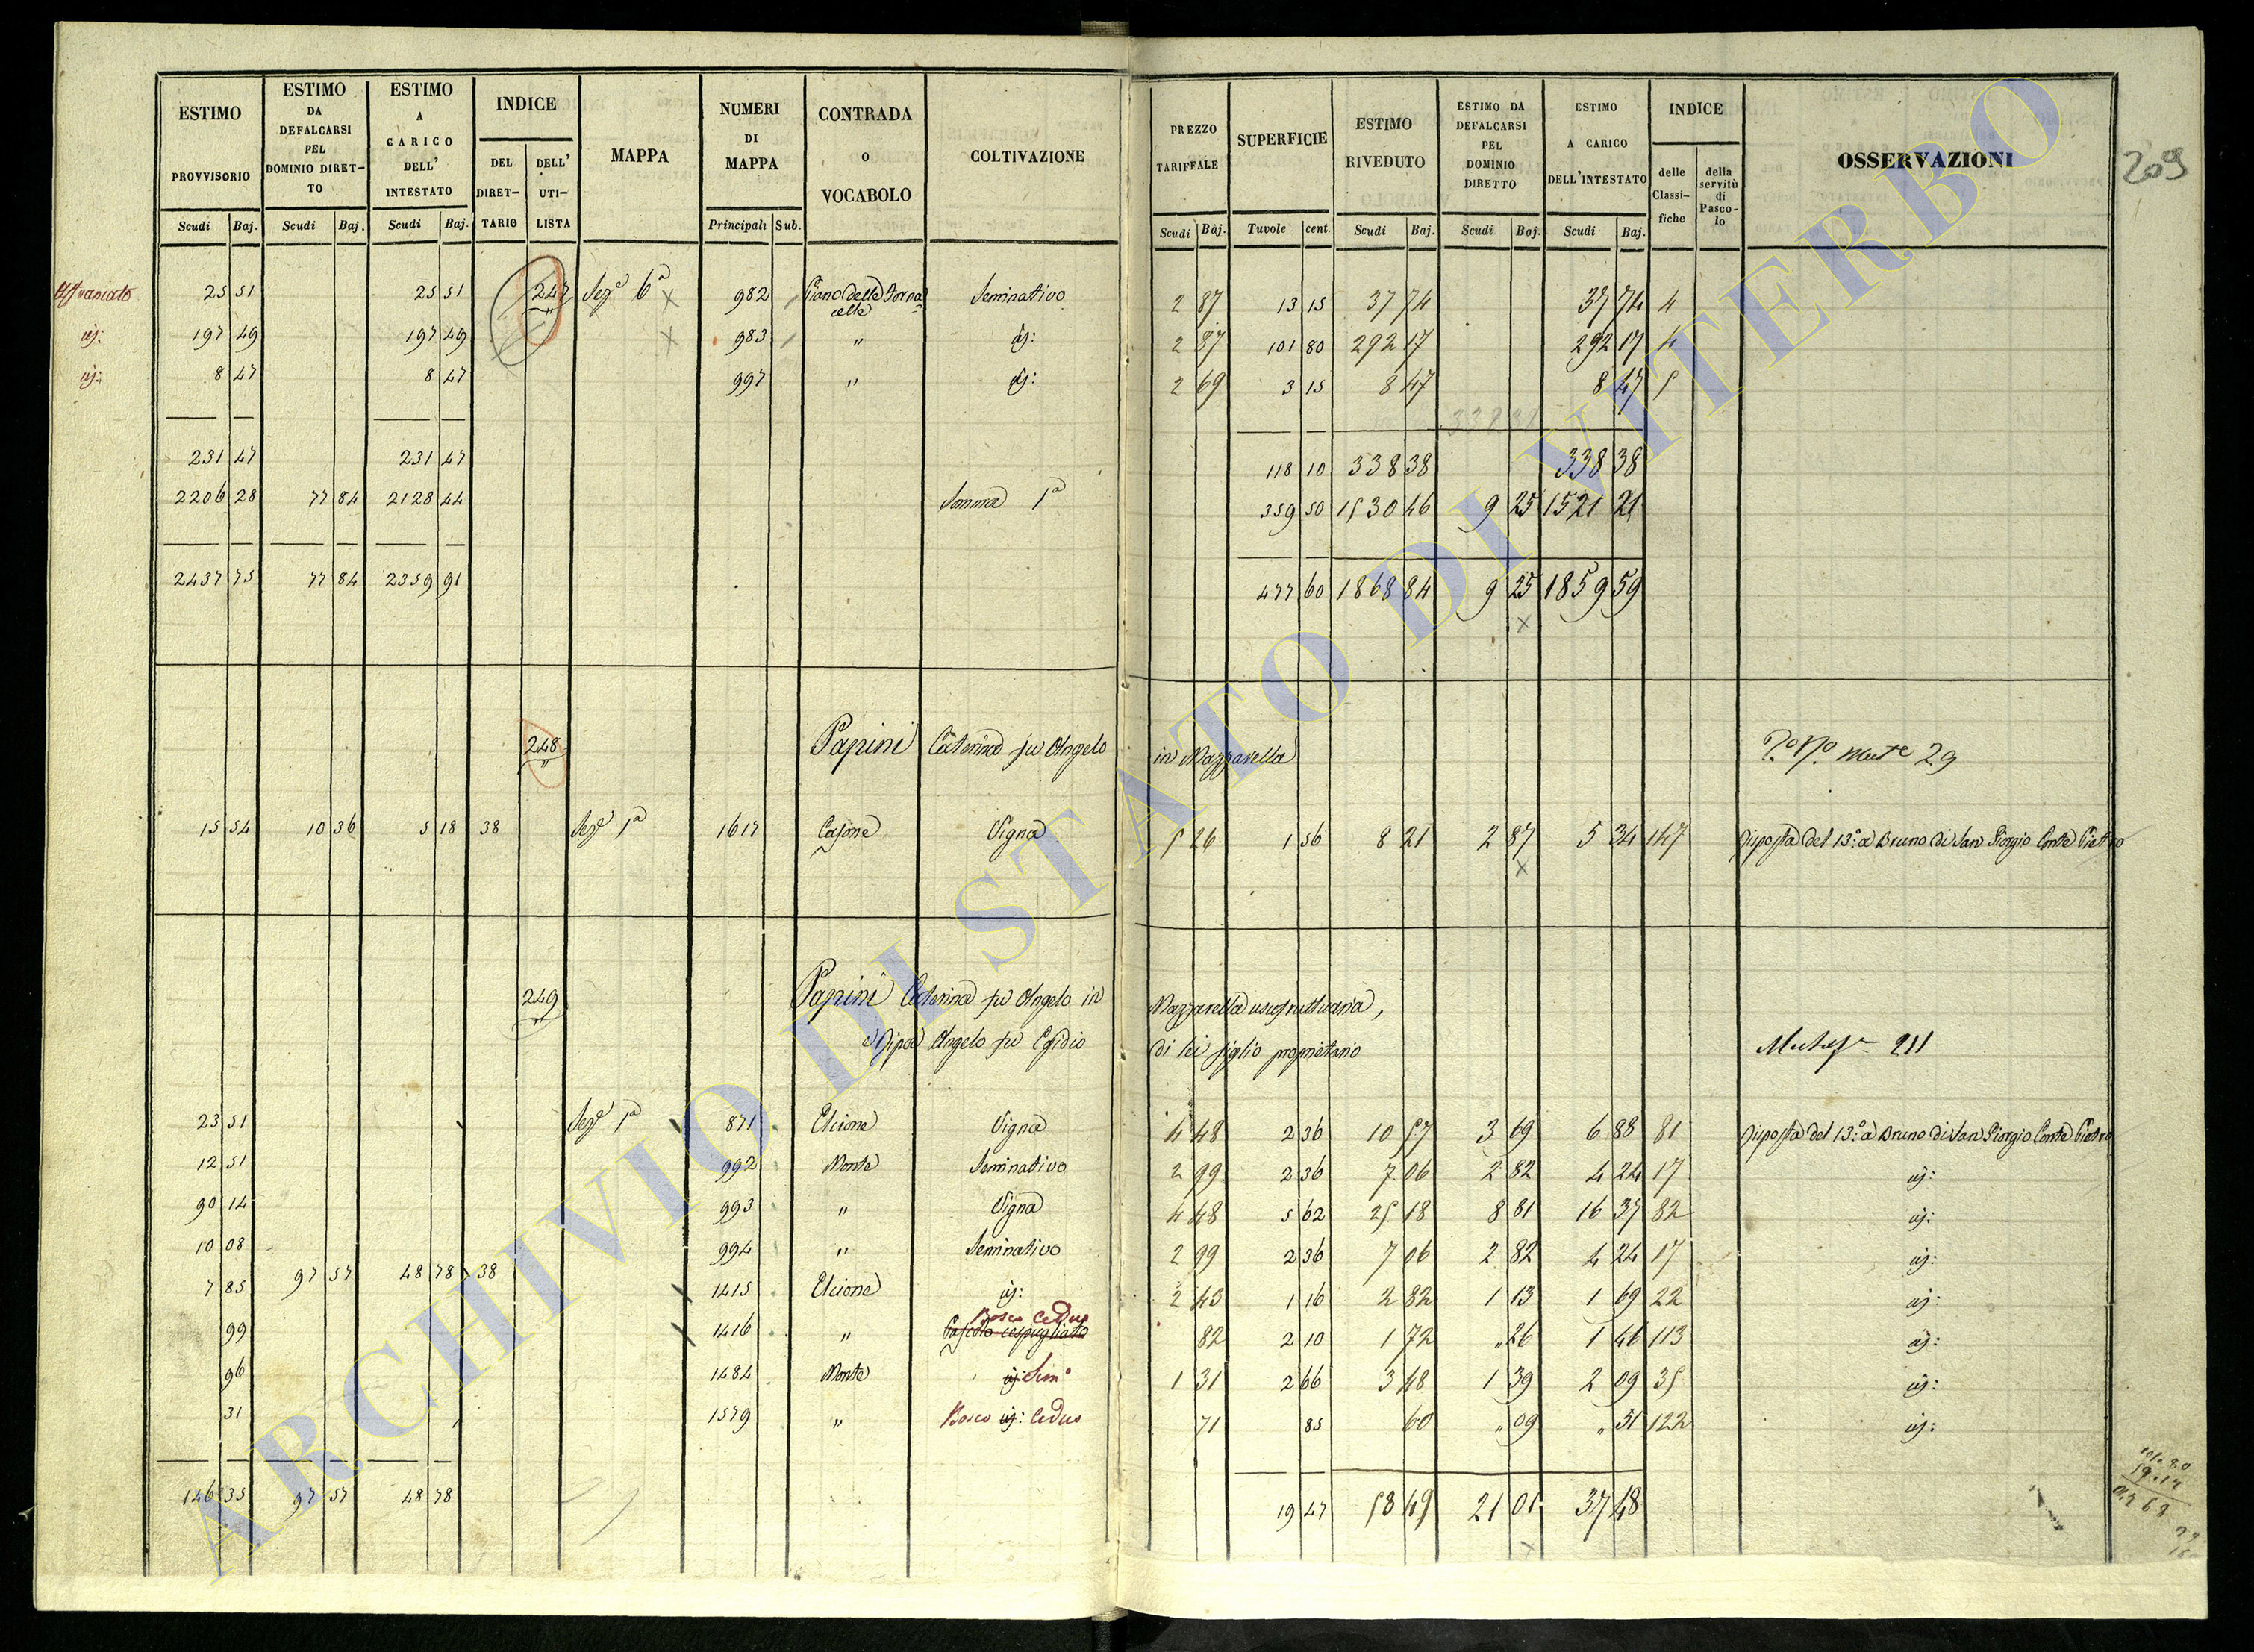 209
ESTIMO PROVVISORIO Scudi Baj. | ESTIMO DA DEFALCARSI PEL DOMINIO DIRETTO Scudi Baj. | ESTIMO A CARICO DELL' INTESTATO Scudi Baj. | INDICE DEL DIRETTARIO DELL' UTILISTA | MAPPA | NUMERI DI MAPPA Principali Sub. | CONTRADA O VOCABOLO | COLTIVAZIONE | PREZZO TARIFFALE Scudi Baj. | SUPERFICIE Tavole cent. | ESTIMO RIVEDUTO Scudi Baj. | ESTIMO DA DEFALCARSI PEL DOMINIO DIRETTO Scudi Baj. | ESTIMO A CARICO DELL'INTESTATO Scudi Baj. | INDICE delle Classifiche della servitù di Pascolo | OSSERVAZIONI
Affrancato 25 51 25 51 247 Sez.e 6a 982 Piano delle Forna celle Seminativo 2 87 13 15 37 74 37 74 4
id: 197 49 197 49 983 " id: 2 87 101 80 292 17 292 17 4
id: 8 47 8 47 997 " id: 2 69 3 15 8 47 8 47 5
231 47 231 47 118 10 338 38 338 38
2206 28 77 84 2128 44 Somma 1a 359 50 1530 46 9 25 1521 21
2437 75 77 84 2359 91 477 60 1868 84 9 25 1859 59
248 Papini Caterina fu Angelo in Mazzarella
29
15 54 10 36 5 18 38 Sez.e 1a 1617 Casone Vigna 5 26 1 56 8 21 2 87 5 34 147 Risposta del 13.° a Bruno di San Giorgio Conte Pietro
249 Papini Caterina fu Angelo in Mazzarella usufruttuaria,
e Ripa Angelo fu Egidio di lei figlio proprietario
211
23 51 Sez.e 1a 871 Elcione Vigna 4 48 2 36 10 57 3 69 6 88 81 Risposta del 13.° a Bruno di San Giorgio Conte Pietro
12 51 992 Monte Seminativo 2 99 2 36 7 06 2 82 4 24 17 id:
90 14 993 " Vigna 4 48 5 62 25 18 8 81 16 37 82 id:
10 08 994 " Seminativo 2 99 2 36 7 06 2 82 4 24 17 id:
97 57 48 78 38
7 85 1415 Elcione id: 2 43 1 16 2 82 1 13 1 69 22 id:
Bosco Ceduo
99 1416 " Pascolo cespugliato 82 2 10 1 72 " 26 1 46 113 id:
96 1484 Monte id: Sem.o 1 31 2 66 3 48 1 39 2 09 35 id:
31 1579 " Bosco id: Ceduo 71 85 60 " 09 " 51 122 id:
146 35 97 57 48 78 19 47 58 49 21 01 37 48
ARCHIVIO DI STATO DI VITERBO